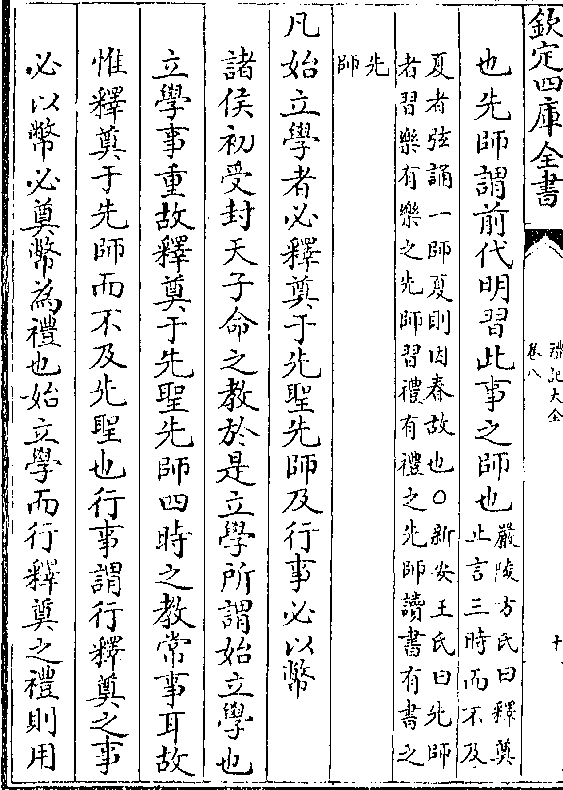 欽定四庫全書
禮記大全
卷八
十
也先師謂前代明習此事之師也
嚴陵方氏曰釋奠
止言三時而不及
夏者弦誦一師夏則因春故也○新安王氏曰先師
者習樂有樂之先師習禮有禮之先師讀書有書之
先
師
凡始立學者必釋奠于先聖先師及行事必以幣
諸侯初受封天子命之教於是立學所謂始立學也
立學事重故釋奠于先聖先師四時之教常事耳故
惟釋奠于先師而不及先聖也行事謂行釋奠之事
必以幣必奠幣為禮也始立學而行釋奠之禮則用